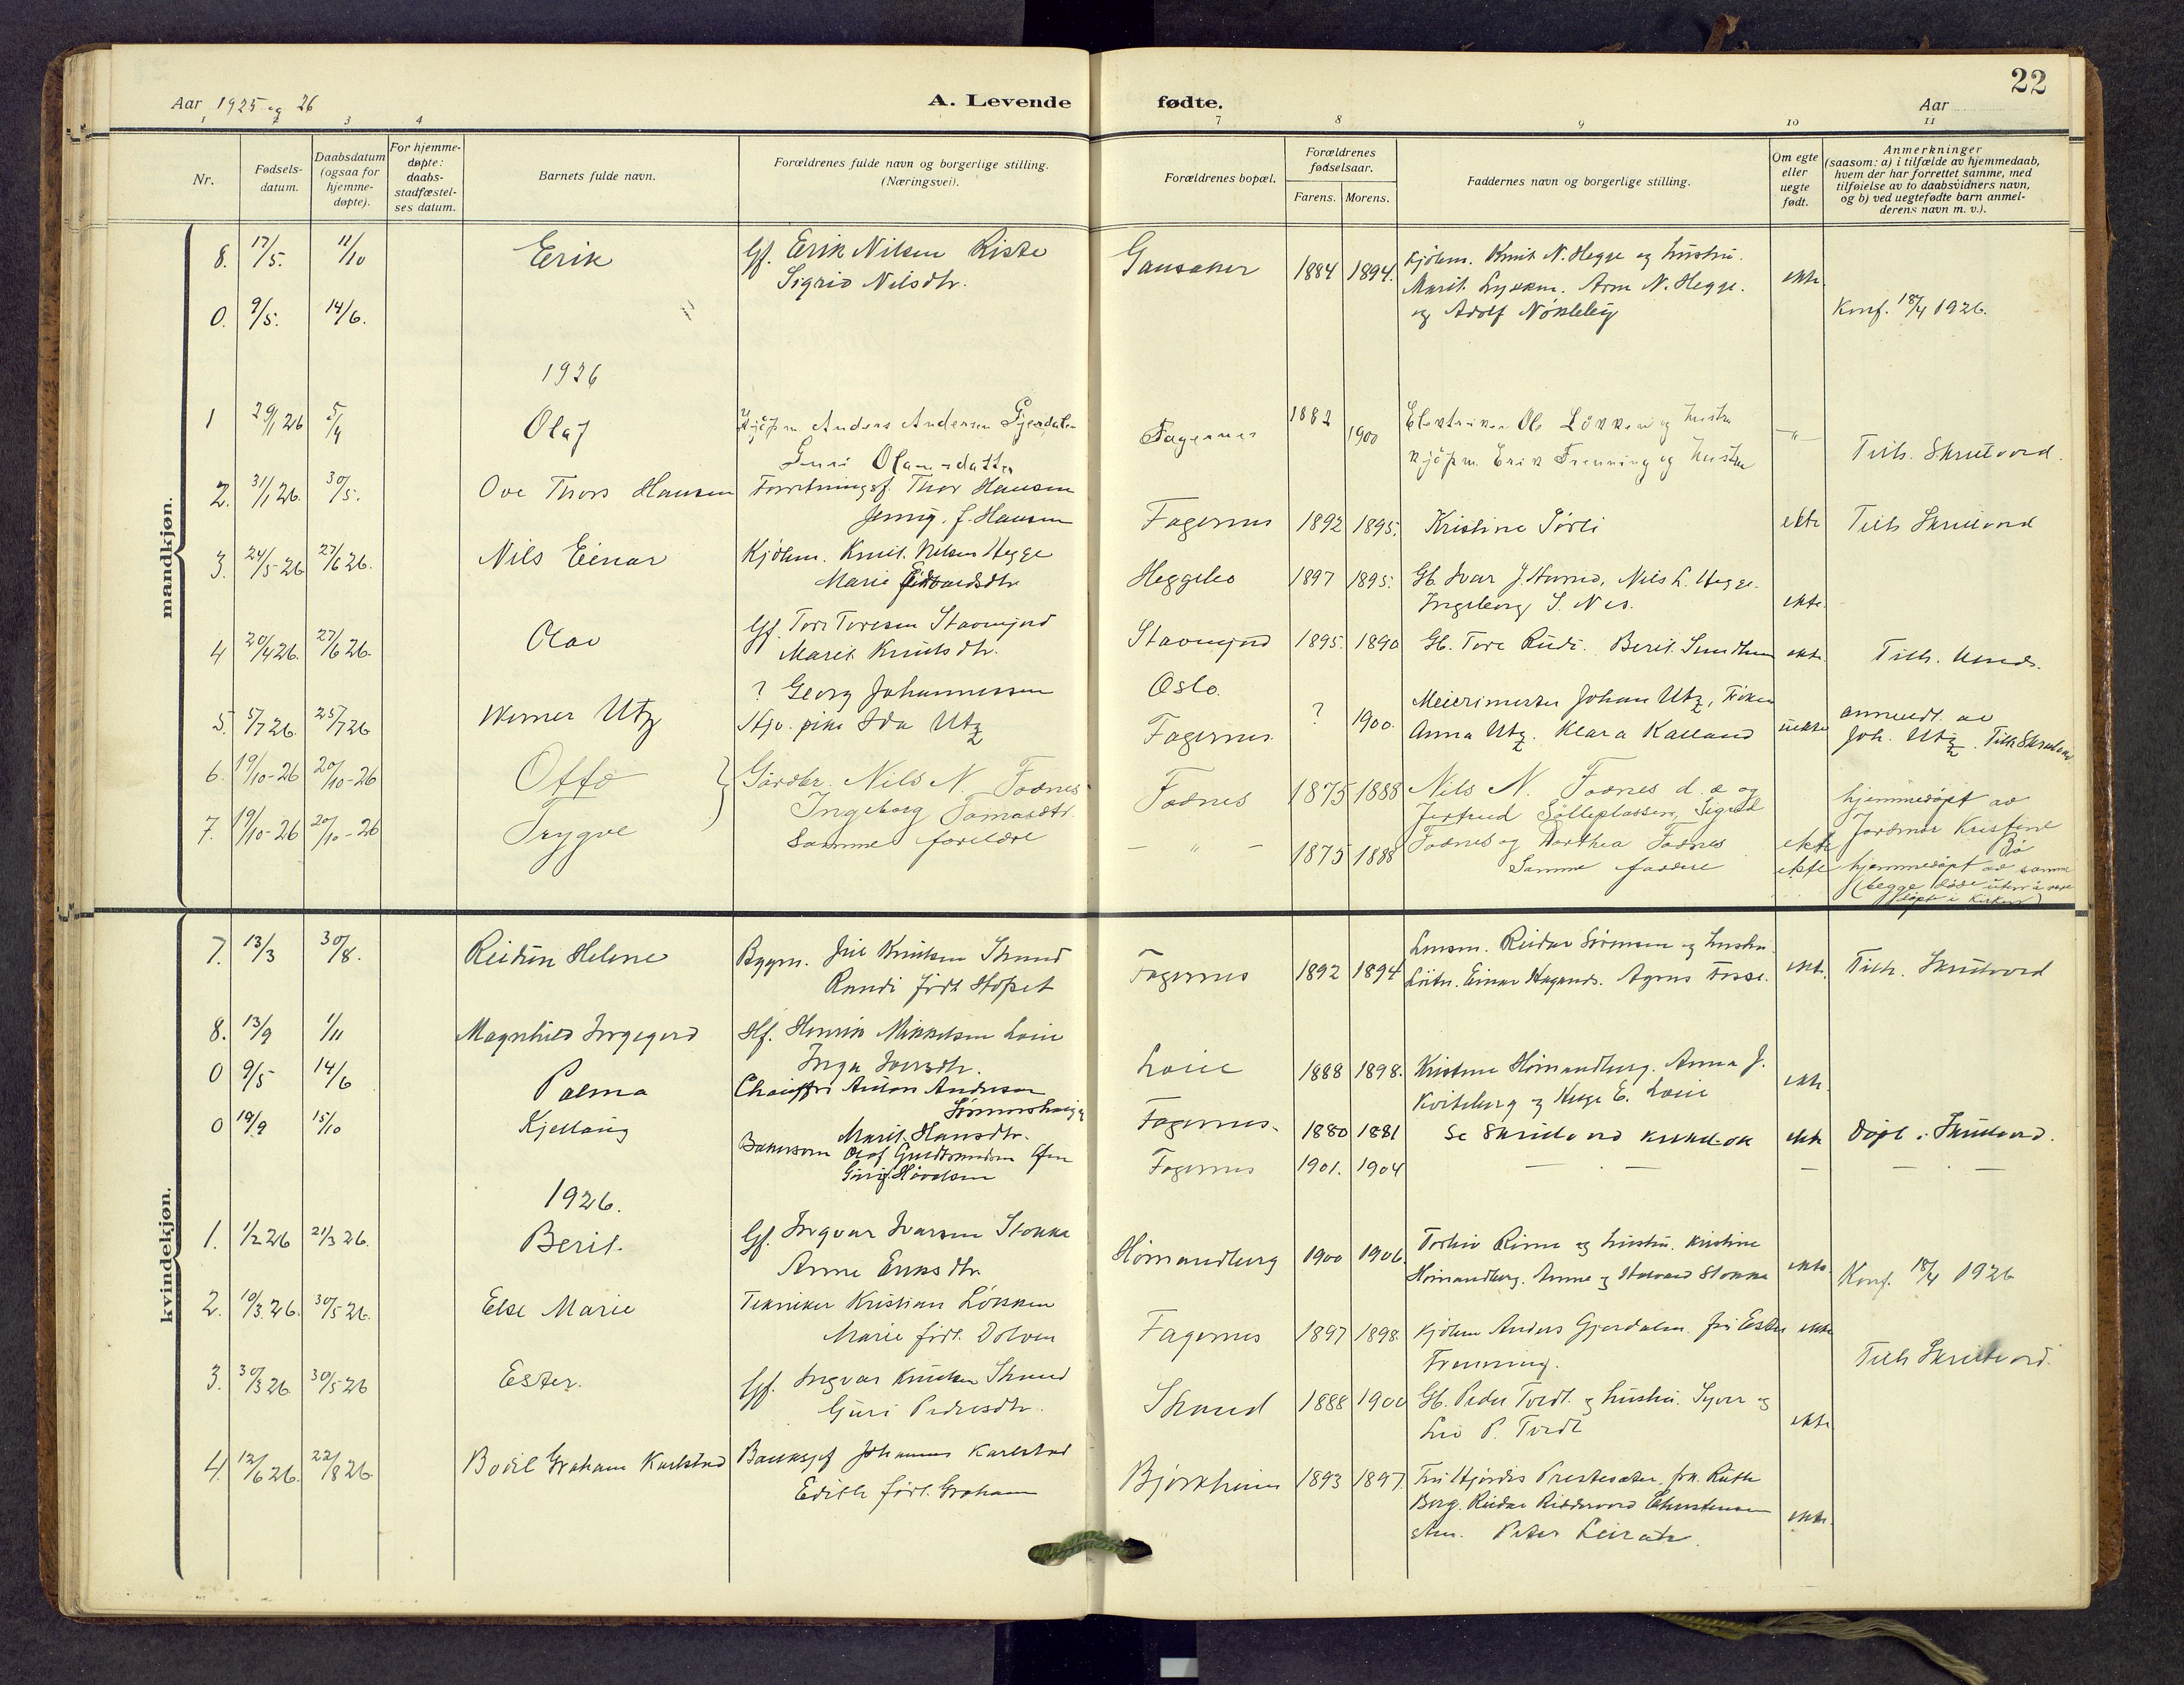 22
Aar 1925 og 26
A. Levende fødte.
Aar
1 2 3 4 7 8 9 10 11
Nr.
Fødsels-
datum.
Daabsdatum
(ogsaa for
hjemme-
døpte).
For hjemme-
døpte:
daabs-
stadfæstel-
ses datum.
Barnets fulde navn.
Forældrenes fulde navn og borgerlige stilling.
(Næringsvei).
Forældrenes bopæl.
Forældrenes
fødselsaar.
Farens. Morens.
Faddernes navn og borgerlige stilling.
Om egte
eller
uegte
født.
Anmerkninger
(saasom: a) i tilfælde av hjemmedaab,
hvem der har forrettet samme, med
tilføielse av to daabsvidners navn,
og b) ved uegtefødte barn anmel-
derens navn m. v.).
mandkjøn.
8. 17/5. 11/10 Erik Gf. Erik Nilsen Riste
Sigrid Nilsdtr.
Gausaker 1884 1894. Kjøbm. Knut N. Hegge og hustru.
Marit Arne N. Hegge.
og Adolf Nøkleby
ekte.
0. 9/5. 14/6. Konf. 18/4 1926.
1926
1 29/1 26 5/4 Olaf Kjøpm. Anders Andersen Gjerdalen
Guri Olavsdatter
Fagernes 1882 1900 Elektriker Ole Løkken og hustru
Kjøpm. Erik Frenning og hustru
-"- Tilh. Skrutvold.
2. 31/1 26. 30/5. Ove Thors Hansen Forretningsf. Thor Hansen
Jenny f. Hansen
Fagernes 1892 1895. Kristine Sørli ekte Tilh Skrutvold
3. 24/5-26 27/6 26. Nils Einar Kjøbm. Knut Nilsen Hegge
Marie Edvardsdtr
Heggebo 1897 1895. Gb. Ivar J. Nils L. Hegge.
Ingeborg S. Nes. ekte.
4 20/4 26. 27/6 26. Olav Gf. Tore Toresen Stavnsjord
Marit Knutsdtr.
1895. 1890 Gb. Tore Rudi. Berit ekte. Tilh.
5. 5/7 26. 25/7 26 Werner Utz ? Georg Johannessen
Stjv. pike Ida Utz
Oslo.
Fagernes ? 1900. Meierimester Johan Utz, Frøken
Anna Utz. Klara Kalland uekte anmeldt av
Joh. Utz. Tilh Skrutvold
6. 19/10-26 20/10-26 Otto Gårdbr. Nils N. Fodnes
Ingeborg Tomasdtr.
Fodnes 1875 1888 Nils N. Fodnes d. e. og
Jertrud Sølleplassen, Sigrid
Fodnes og Dorthea Fodnes ekte hjemmedøpt av
Jordmor Kristine
Bø
7. 19/10-26 20/10-26 Trygve Samme foreldre
- " - 1875 1888 Samme faddere ekte hjemmedøpt av samme
(begge døde uten å være
døpte i kirken)
kvindekjøn.
7. 13/3 30/8. Reidun Helene Bygm. Knutsen Strand
Randi født Hopset
Fagernes 1892 1894 Lensm. Reidar Sørensen og hustru
Løitn. Einar Agnes Fosse. ekte. Tilh. Skrutvold
8. 13/9 1/11 Magnhild Ingegerd Gf. Henrik Mikkelsen Loie
Inga Iversdtr.
Loie 1888 1898. Kristine Hømandberg. Anna J.
Kviteberg og Helge E. Loie ekte.
0 9/5 14/6 Palma Chaufför Anton Andersen
Marit Hansdtr.
Fagernes. 1880 1881 Se Skrutvold kirkebok ekte Døpt i Skrutvold.
0 19/9 15/10 Kjellaug Bakersven Olaf Guldbrandsen
Fagernes 1901. 1904 — — — — —
1926.
1. 1/2 26 21/3 26. Berit. Gf. Ingvar Ivarsen Stokke
Anne Eriksdtr.
Hømandberg 1900 1906. Torleiv Rime og hustru. Kristine
Hømandberg. Anne og Halvard Stokke ekte. Konf. 18/4 1926
2. 10/3 26. 30/5 26. Else Marie Tekniker Kristian Løkken
Marie født Dolven
Fagernes 1897 1898. Kjøbm Anders Gjerdalen. fru Ester
Frenning. ekte Tilh Skrutvold.
3. 30/3 26. 30/5 26 Ester. Gf. Ingvar Knutsen Strand
Guri Pedersdtr.
Strand 1888 1900 Gb. Peder og hustru. Syver og
Liv P. ekte
4. 12/6 26. 22/8 26. Bodil Graham Karlstad Banksjef Johannes Karlstad
Edith født Graham
Bjørkheim 1893 1897. Fru Hjørdis Prestesæter. frk. Ruth
Borg. Reidar Ridderold Christensen
Peter Leirah. ekte.